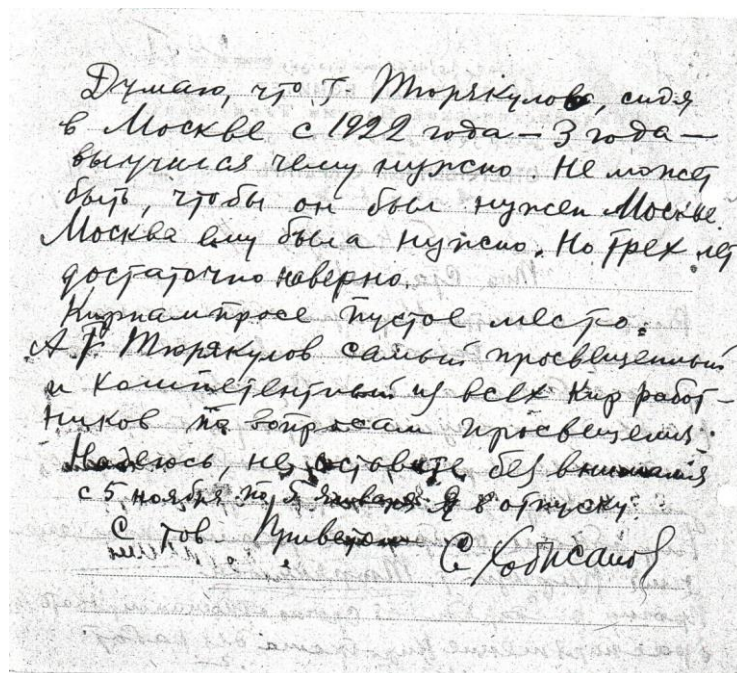 Думаю, что т. Тюрякулов, сидя
в Москве с 1922 года – 3 года –
выучился чему нужно. Не может
быть, чтобы он был нужен Москве.
Москва ему была нужно. Но трех лет
достаточно наверно.
Кирнампросе пустое место.
А т. Тюрякулов самый просвещенный
и компетентный из всех Кир работ-
ников по вопросам просвещения.
Надеюсь, не оставите без внимания
с 5 ноября по 5 января я в отпуску.
С тов Приветом
С Ходжанов